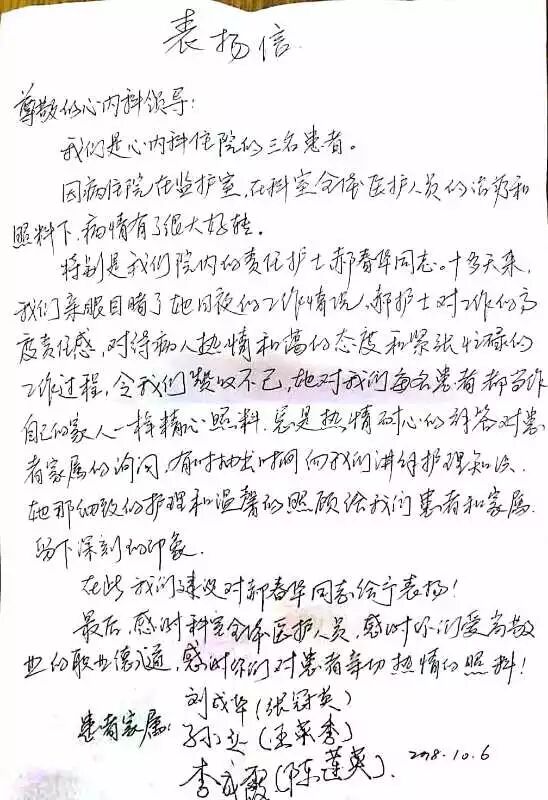 表扬信
尊敬的心内科领导:
我们是心内科住院的三名患者。
因病住院在监护室,在科室全体医护人员的治疗和
照料下,病情有了很大好转。
特别是我们院内的责任护士郝春华同志。十多天来,
我们亲眼目睹了她日夜的工作情况,郝护士对工作的高
度责任感,对待病人热情和蔼的态度和紧张忙碌的
工作过程,令我们赞叹不已,她对我们每名患者都当作
自己的家人一样精心照料,总是热情耐心的解答对患
者家属的询问,有时抽出时间向我们讲解护理知识.
她那细致的护理和温馨的照顾给我们患者和家属
留下深刻的印象.
在此,我们建议对郝春华同志给予表扬!
最后,感谢科室全体医护人员,感谢你们爱岗敬
业的职业德道,感谢你们对患者亲切热情的照料!
刘成华(张冠英)
患者家属: 孙立(王菜季)
李成霞(陈莲英).
2018.10.6